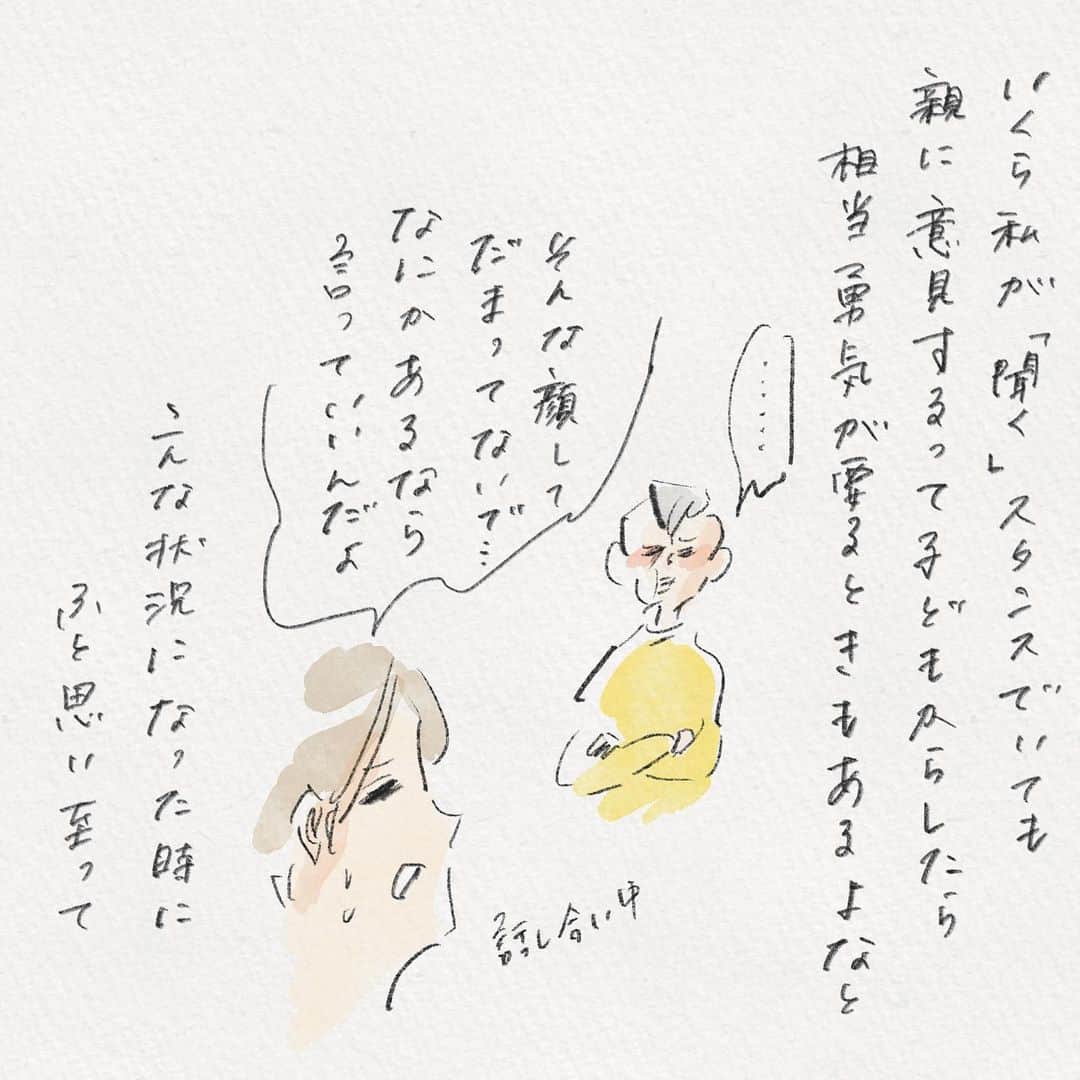 いくら私が「聞く」スタンスでいても
親に意見するって子どもからしたら
相当勇気が要るときもあるよなと
………
そんな顔して
だまってないで…
なにかあるなら
言っていいんだよ
話し合い中
こんな状況になった時に
ふと思い至って